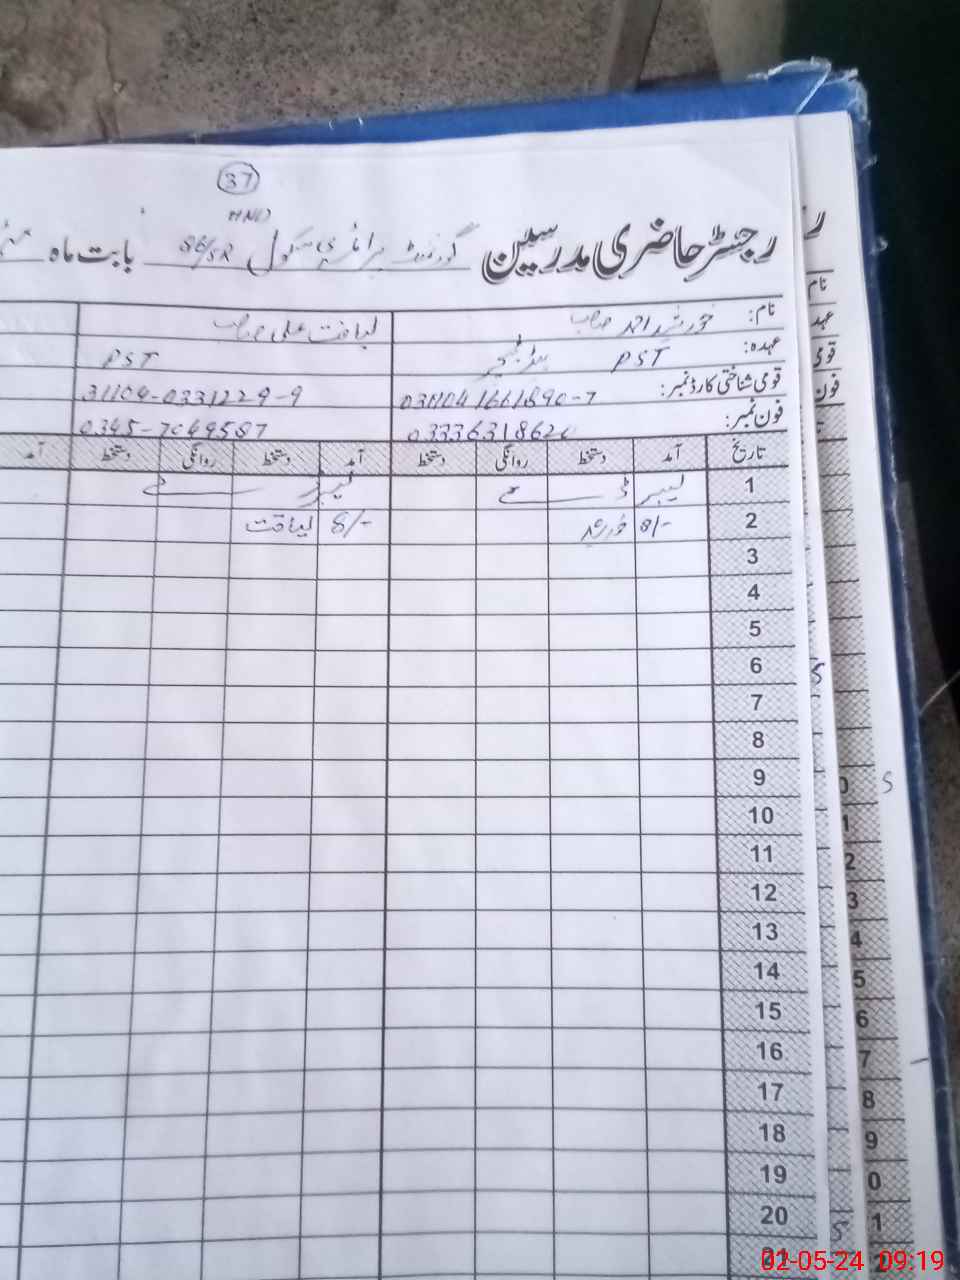 37
HND
رجسٹر حاضری مدرسین گورنمنٹ پرائمری سکول 86/5R بابت ماہ
نام: خورشید احمد صاحب لیاقت علی صاحب
عہدہ: PST ہیڈ ٹیچر PST
قومی شناختی کارڈ نمبر: 31104-0331229-9
فون نمبر: 0345-7049587
تاریخ آمد دستخط روانگی دستخط آمد دستخط روانگی دستخط آمد
1 لیبر ڈے لیبر ڈے
2 8/- خورشید 8/- لیاقت
3
4
5
6
7
8
9
10
11
12
13
14
15
16
17
18
19
20
21
ر
نام
عہد
قومی
فون
S
S
02-05-24 09:19